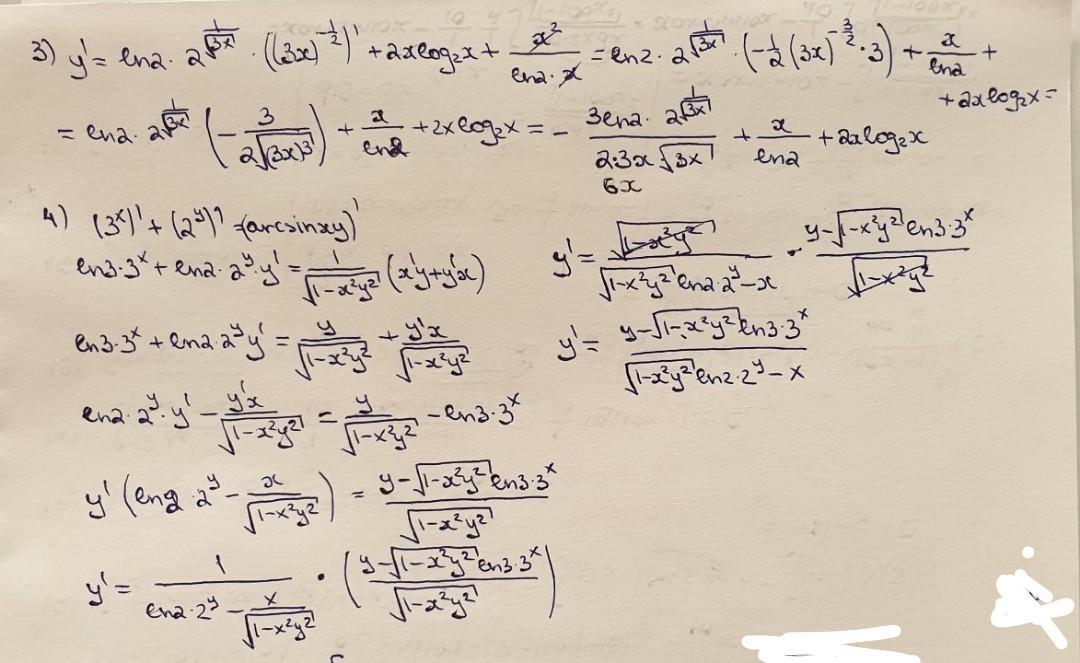 3) y' = ln2 · 2^{\frac{1}{\sqrt{3x}}} · ((3x)^{-\frac{1}{2}})' + 2xlog₂x + \frac{x²}{ln2 · x} = ln2 · 2^{\frac{1}{\sqrt{3x}}} · (-\frac{1}{2}(3x)^{-\frac{3}{2}} · 3) + \frac{x}{ln2} +
+ 2xlog₂x =
= ln2 · 2^{\frac{1}{\sqrt{3x}}} (-\frac{3}{2\sqrt{(3x)³}}) + \frac{x}{ln2} + 2xlog₂x = - \frac{3ln2 · 2^{\frac{1}{\sqrt{3x}}}}{2·3x\sqrt{3x}} + \frac{x}{ln2} + 2xlog₂x
6x
4) (3^x)' + (2^y)' = (arcsinxy)'
ln3·3^x + ln2 · 2^y · y' = \frac{1}{\sqrt{1-x²y²}} (x'y + y'x)
ln3·3^x + ln2·2^y y' = \frac{y}{\sqrt{1-x²y²}} + \frac{y'x}{\sqrt{1-x²y²}}
ln2·2^y · y' - \frac{y'x}{\sqrt{1-x²y²}} = \frac{y}{\sqrt{1-x²y²}} - ln3·3^x
y' (ln2 · 2^y - \frac{x}{\sqrt{1-x²y²}}) = \frac{y-\sqrt{1-x²y²} ln3·3^x}{\sqrt{1-x²y²}}
y' = \frac{1}{ln2·2^y - \frac{x}{\sqrt{1-x²y²}}} · (\frac{y-\sqrt{1-x²y²} ln3·3^x}{\sqrt{1-x²y²}})
y' = \frac{\sqrt{1-x²y²}}{\sqrt{1-x²y²} ln2·2^y - x} · \frac{y-\sqrt{1-x²y²} ln3·3^x}{\sqrt{1-x²y²}}
y' = \frac{y-\sqrt{1-x²y²} ln3·3^x}{\sqrt{1-x²y²} ln2·2^y - x}